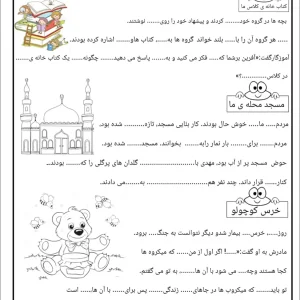 کتاب خانه ی کلاس ما
بچه ها در گروه خود........ کردند و پیشهاد خود را روی........ نوشتند.
.... هر گروه آن را با..... بلند خواند گروه ها به..... کتاب هاو...... اشاره کرده بودند.
آموزگارگفت:«آفرین برشما که..... فکر می کنید و به........ پاسخ می دهید......... چگونه..... یک کتاب خانه ی........
در کلاس............؟»
مسجد محله ی ما
مردم..... ما.... خوش حال بودند. کار بنایی مسجد، تازه.......... شده بود.
مردم..... برای........ بار نماز رابه......... بخوانند. مسجد........ شده بود.
حوض مسجد پر از آب بود. مهدی با............ گلدان های پرگلی را که....... بودند...
کنار...... قرار داد. چند نفر هم.............. به.......می دادند.
خرس کوچولو
روز...... خرس.... بیمار شدو دیگر نتوانست به جنگل.... برود.
مادرش به او گفت:«.....! اگر اول از من...... که میکروب ها
کجا هستند وچه..... می شود با آن ها........ به تو می گفتم.
تو باید...... که میکروب ها در جاهای...... زندگی...... پس برای....... با آن ها...... است